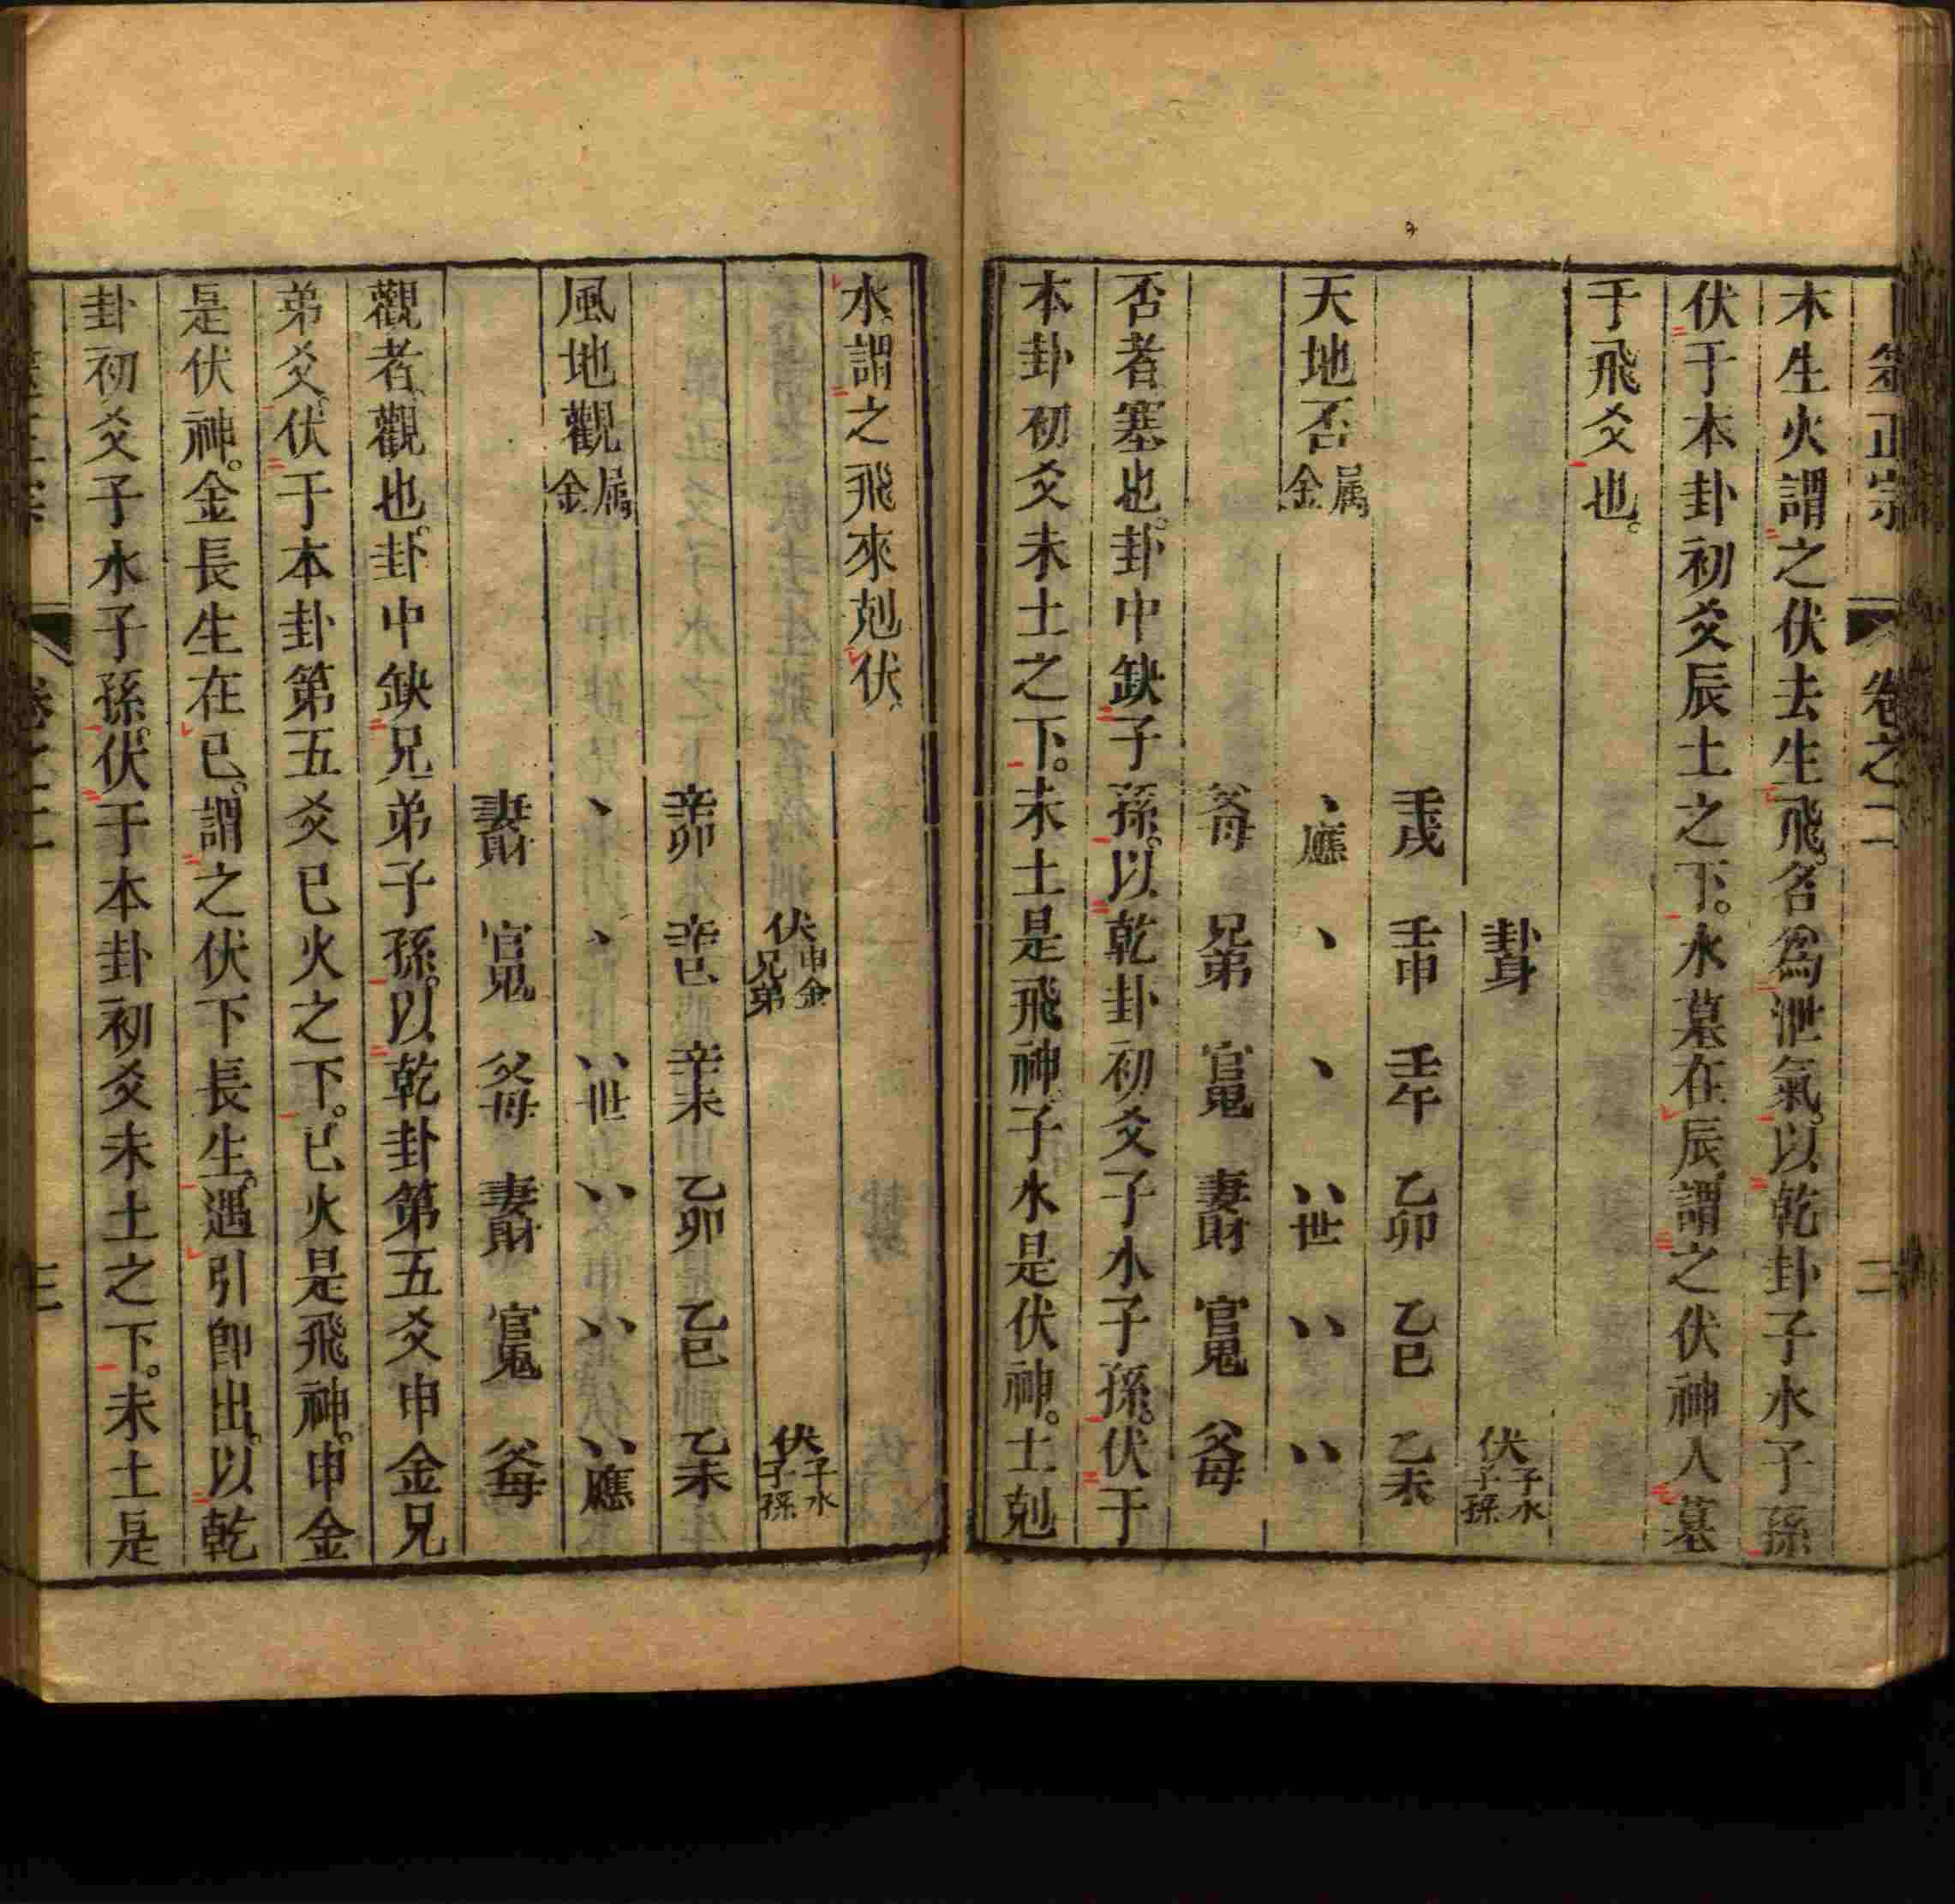 筮正宗 卷之二 二
木生火謂之伏去生飛。名爲泄氣。以乾卦子水子孫
伏于本卦初爻辰土之下。水墓在辰、謂之伏神入墓
于飛爻也。
卦身 伏子水子孫
壬戌 壬申 壬午 乙卯 乙巳 乙未
天地否屬金 、應 、 、 、、世 、、 、、
父母 兄弟 官鬼 妻財 官鬼 父母
否者塞也。卦中缺子孫。以乾卦初爻子水子孫。伏于
本卦初爻未土之下。未土是飛神、子水是伏神。土剋
水、謂之飛來剋伏、
伏申金兄弟 伏子水子孫
辛卯 辛巳 辛未 乙卯 乙巳 乙未
風地觀屬金 、 、 、、世 、、 、、 、、應
妻財 官鬼 父母 妻財 官鬼 父母
觀者、觀也。卦中缺兄弟子孫。以乾卦第五爻申金兄
弟爻、伏于本卦第五爻巳火之下。巳火是飛神。申金
是伏神。金長生在巳。謂之伏下長生。遇引卽出。以乾
卦初爻子水子孫。伏于本卦初爻未土之下。未土是
卷之二 三